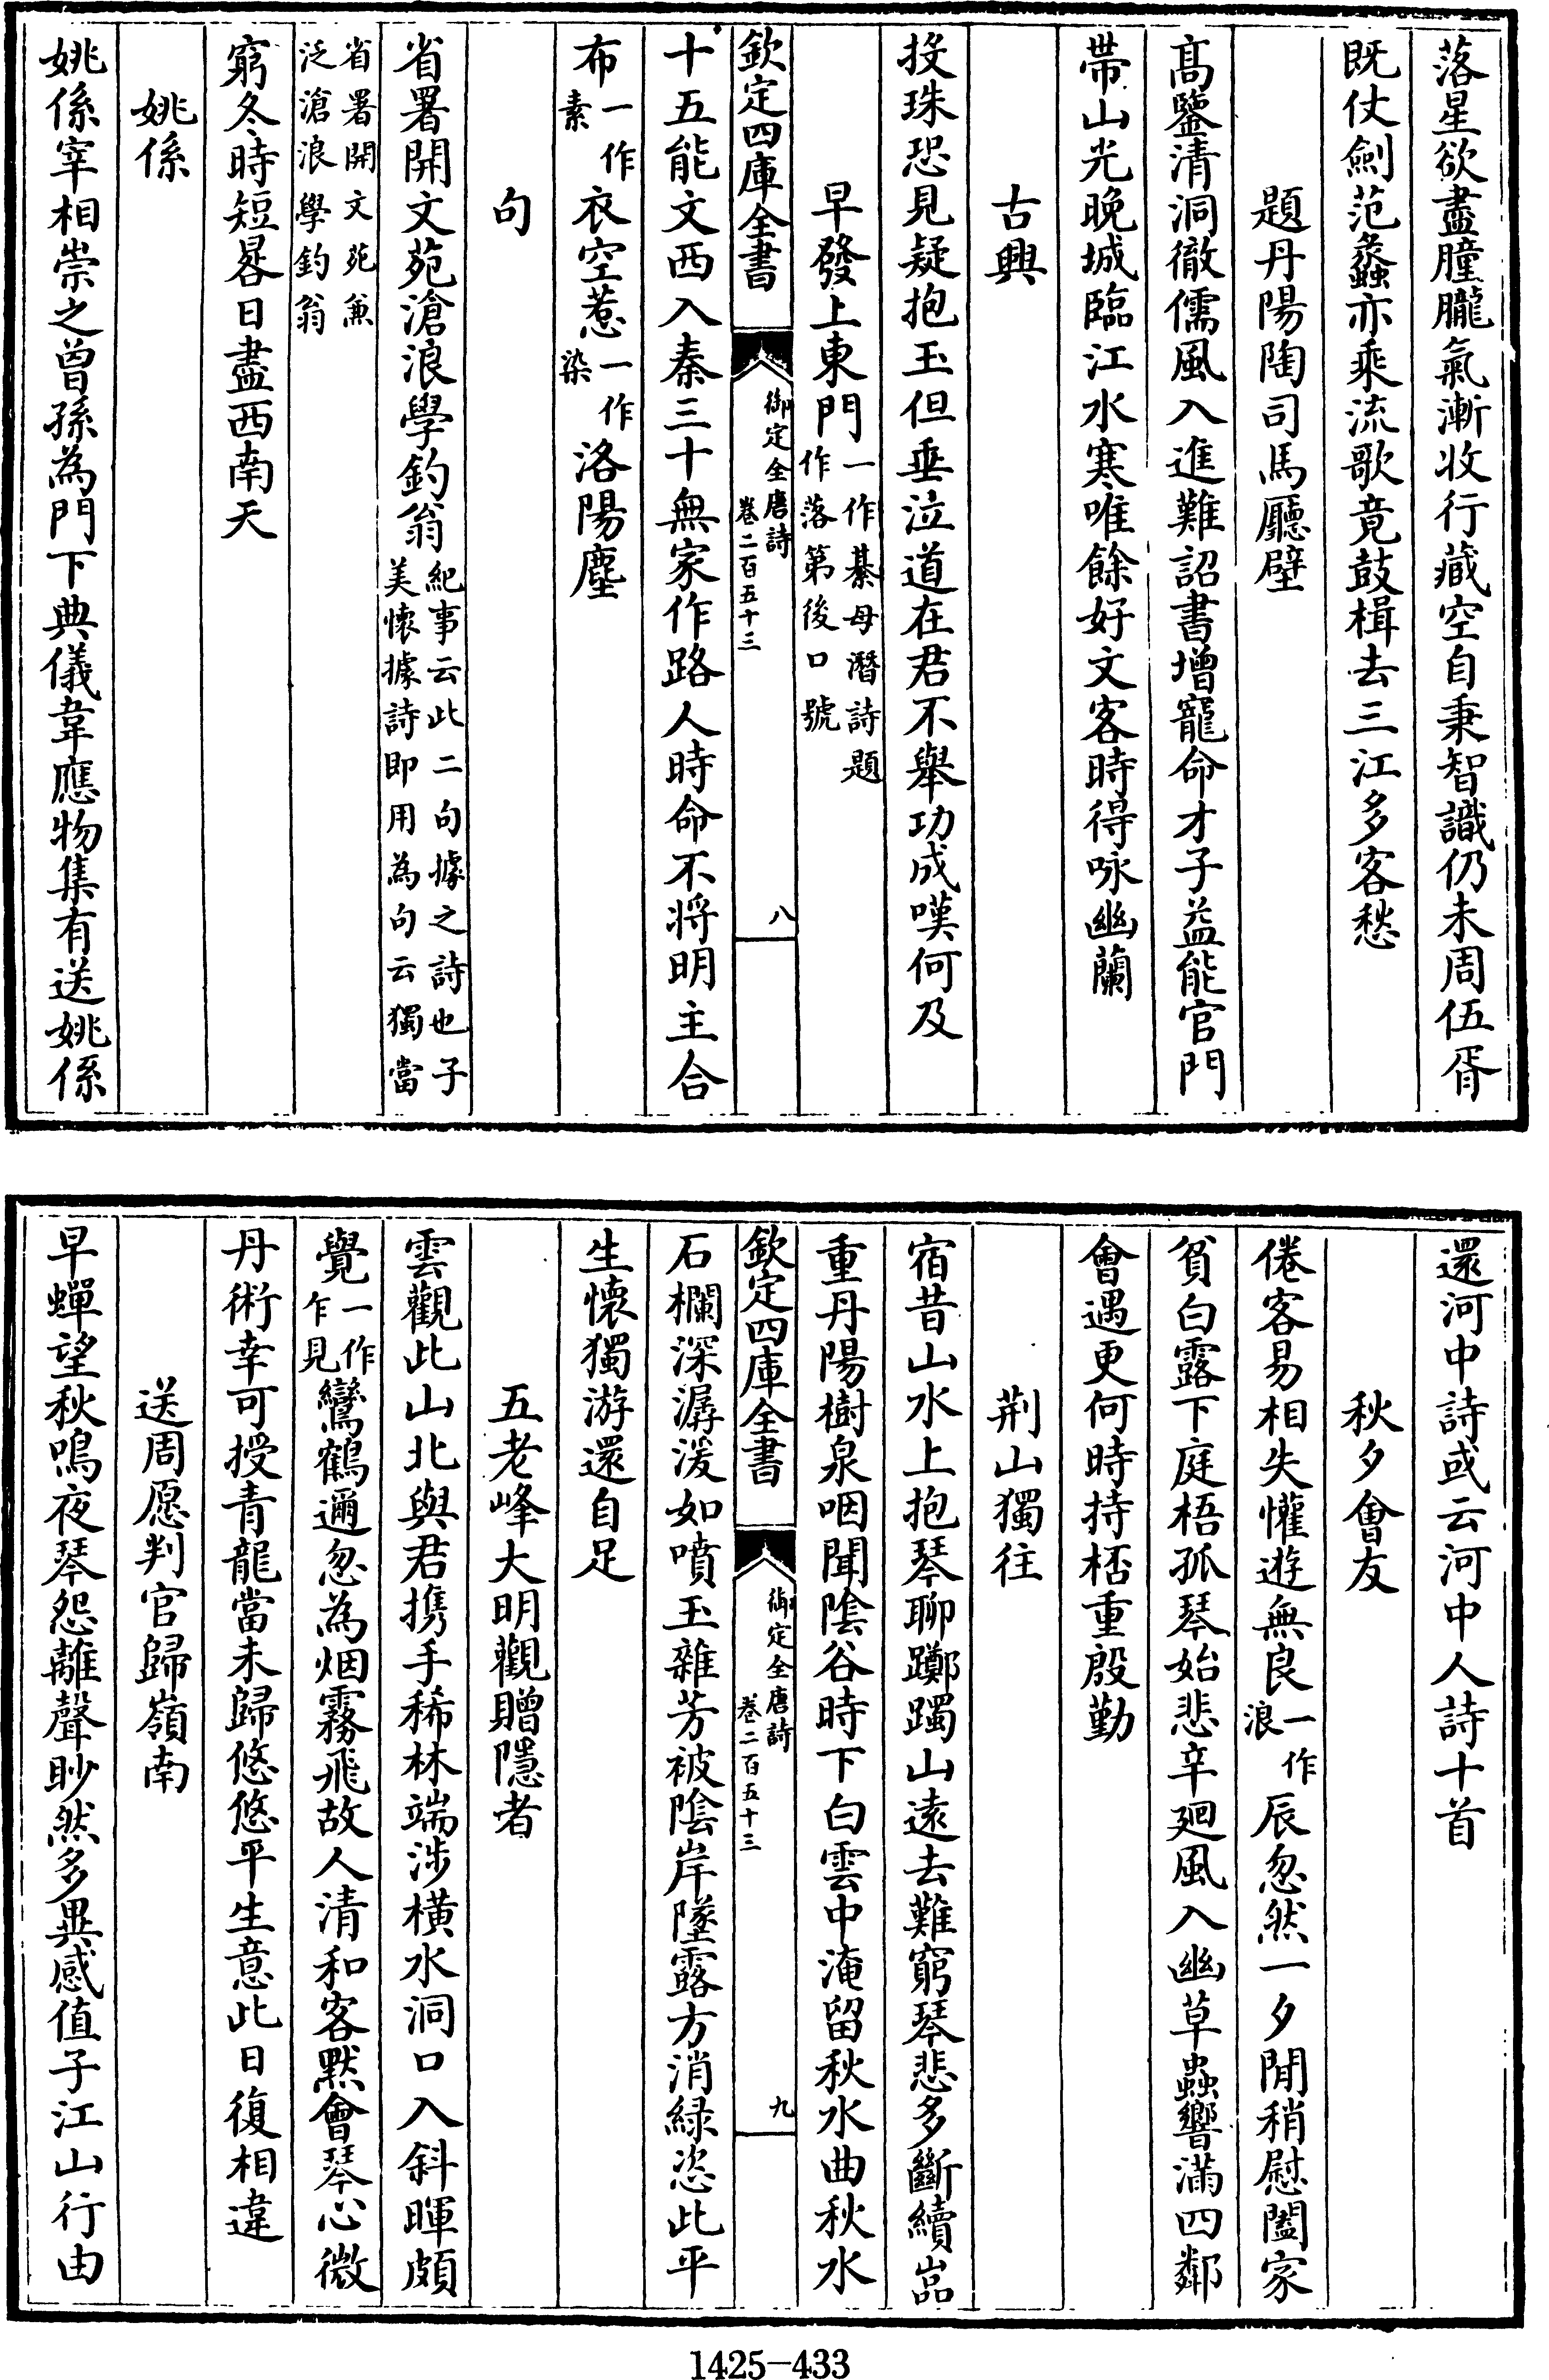 落星欲盡朣朧氣漸收行藏空自秉智識仍未周伍胥
既仗劍范蠡亦乘流歌竟鼓楫去三江多客愁
題丹陽陶司馬廳壁
髙鑒清洞徹儒風入進難詔書增寵命才子益能官門
帶山光晚城臨江水寒唯餘好文客時得咏幽蘭
古興
投珠恐見疑抱玉但垂泣道在君不舉功成嘆何及
早發上東門一作綦母潛詩題作落第後口號
欽定四庫全書
御定全唐詩
卷二百五十三
八
十五能文西入秦三十無家作路人時命不將明主合
布一作素衣空惹一作染洛陽塵
句
省署開文苑滄浪學釣翁紀事云此二句據之詩也子美懷據詩即用為句云獨當
省署開文苑兼泛滄浪學釣翁
窮冬時短晷日盡西南天
姚係
姚係宰相崇之曾孫為門下典儀韋應物集有送姚係
還河中詩或云河中人詩十首
秋夕會友
倦客易相失懽遊無良一作浪辰忽然一夕閒稍慰闔家
貧白露下庭梧孤琴始悲辛廻風入幽草蟲響滿四鄰
會遇更何時持桮重殷勤
荆山獨往
宿昔山水上抱琴聊躑躅山遠去難窮琴悲多斷續嵒
重丹陽樹泉咽聞陰谷時下白雲中淹留秋水曲秋水
欽定四庫全書
御定全唐詩
卷二百五十三
九
石欄深潺湲如噴玉雜芳被陰岸墜露方消緑恣此平
生懷獨游還自足
五老峰大明觀贈隱者
雲觀此山北與君携手稀林端涉横水洞口入斜暉頗
覺一作乍見鸞鶴邇忽為烟霧飛故人清和客黙會琴心微
丹術幸可授青龍當未歸悠悠平生意此日復相違
送周愿判官歸嶺南
早蟬望秋鳴夜琴怨離聲眇然多異感值子江山行由
1425-433